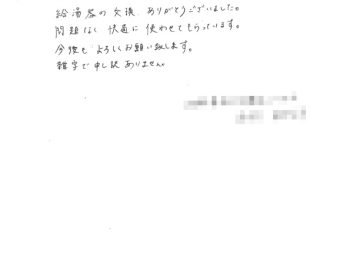 給湯器の交換 ありがとうございました。
問題なく 快適に 使わせてもらっています。
今後も よろしくお願い致します。
雑字で申し訳ありません。